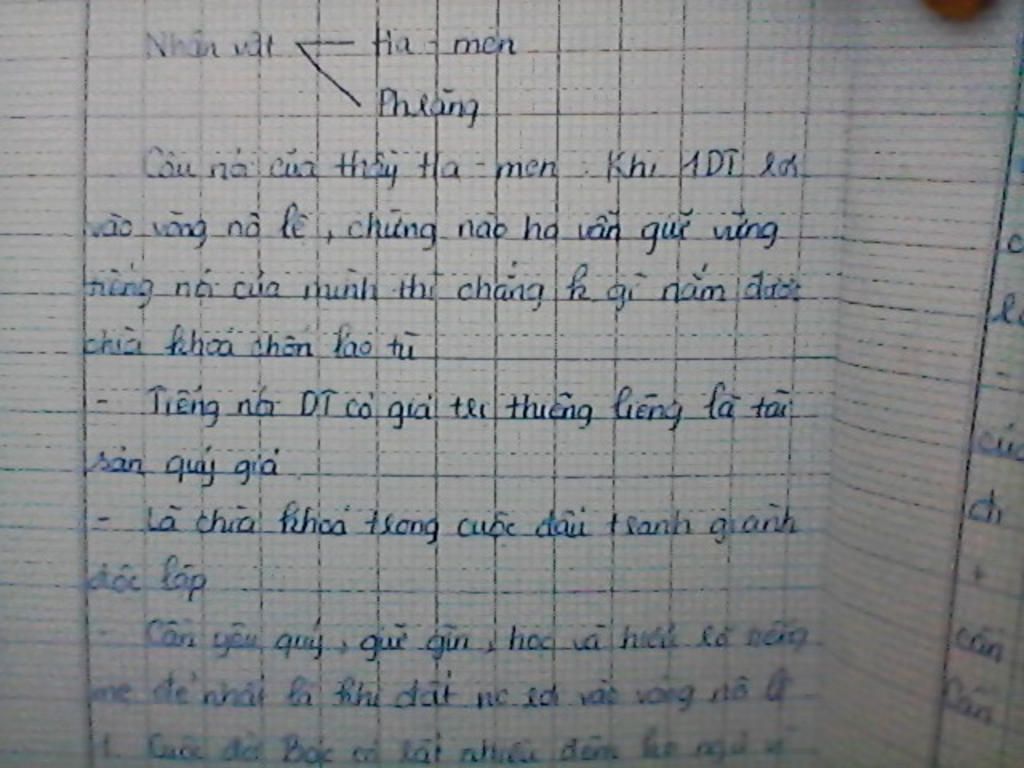 Nhân vật Ha - men
Phrăng
Câu nói của thầy Ha - men : Khi 1DT rơi
vào vòng nô lệ, chừng nào họ vẫn giữ vững
tiếng nói của mình thì chẳng k gì nắm được
chìa khoá chốn lao tù
- Tiếng nói DT có giá trị thiêng liêng là tài
sản quý giá
- Là chìa khoá trong cuộc đấu tranh giành
độc lập
- Cần yêu quý, giữ gìn, học và hiểu rõ tiếng
mẹ đẻ nhất là khi đất nc rơi vào vòng nô lệ
1. Cuộc đời Bác có rất nhiều đêm ko ngủ vì